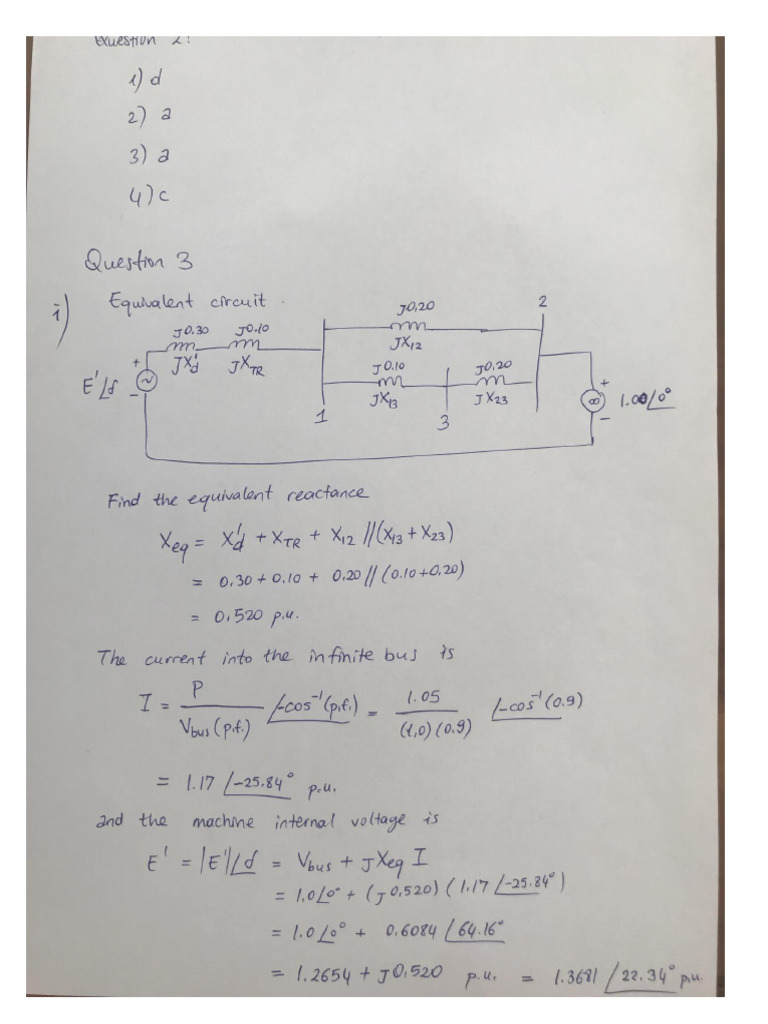 Question 2:
1) d
2) a
3) a
4) c
Question 3
i) Equivalent circuit.
J0.30 J0.10 J0.20 2
JX'd JX_TR JX12
J0.10 J0.20
E'∠δ + - JX13 JX23 ∞ + - 1.00∠0°
1 3
Find the equivalent reactance
Xeq = X'd + X_TR + X12 //(X13 + X23)
= 0.30 + 0.10 + 0.20 // (0.10+0.20)
= 0.520 p.u.
The current into the infinite bus is
I = P / Vbus (p.f.) ∠-cos⁻¹(p.f.) = 1.05 / (1.0)(0.9) ∠-cos⁻¹(0.9)
= 1.17 ∠-25.84° p.u.
and the machine internal voltage is
E' = |E'|∠δ = Vbus + JXeq I
= 1.0∠0° + (J0.520) (1.17 ∠-25.84°)
= 1.0∠0° + 0.6084 ∠64.16°
= 1.2654 + J0.520 p.u. = 1.3681 ∠22.34° p.u.